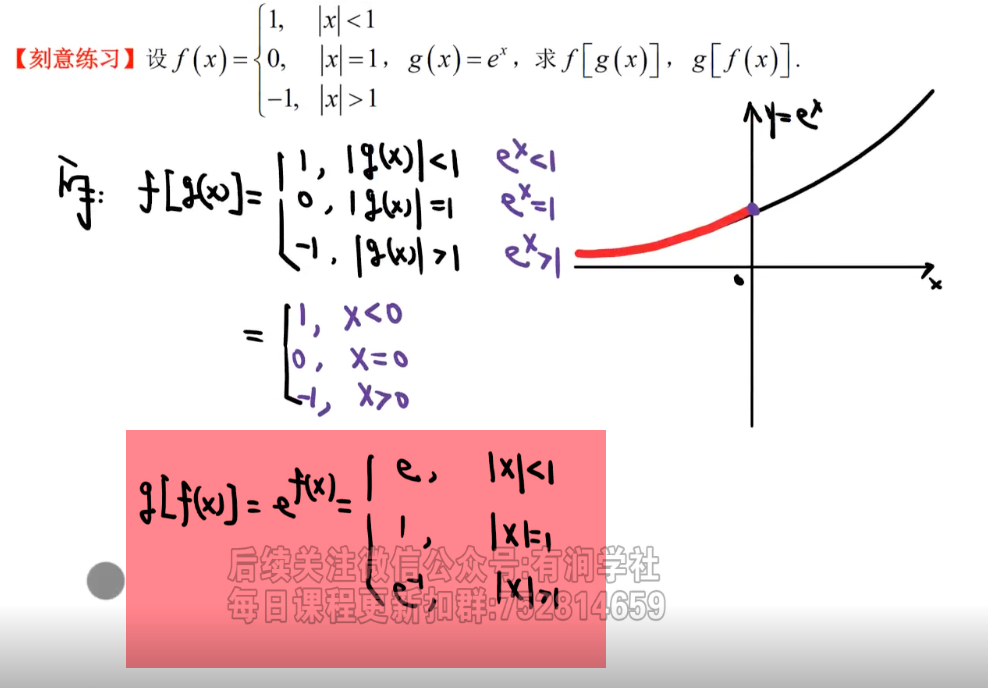 【刻意练习】设 f(x)={1, |x|<1
0, |x|=1, g(x)=eˣ, 求 f[g(x)], g[f(x)].
-1, |x|>1
y=eˣ
f[g(x)]={1, |g(x)|<1 eˣ<1
0, |g(x)|=1 eˣ=1
-1, |g(x)|>1 eˣ>1
0
x
={1, x<0
0, x=0
-1, x>0
g[f(x)]=e^f(x)={e, |x|<1
1, |x|=1
e⁻¹, |x|>1
后续关注微信公众号:有润学社
每日课程更新扣群:752814659